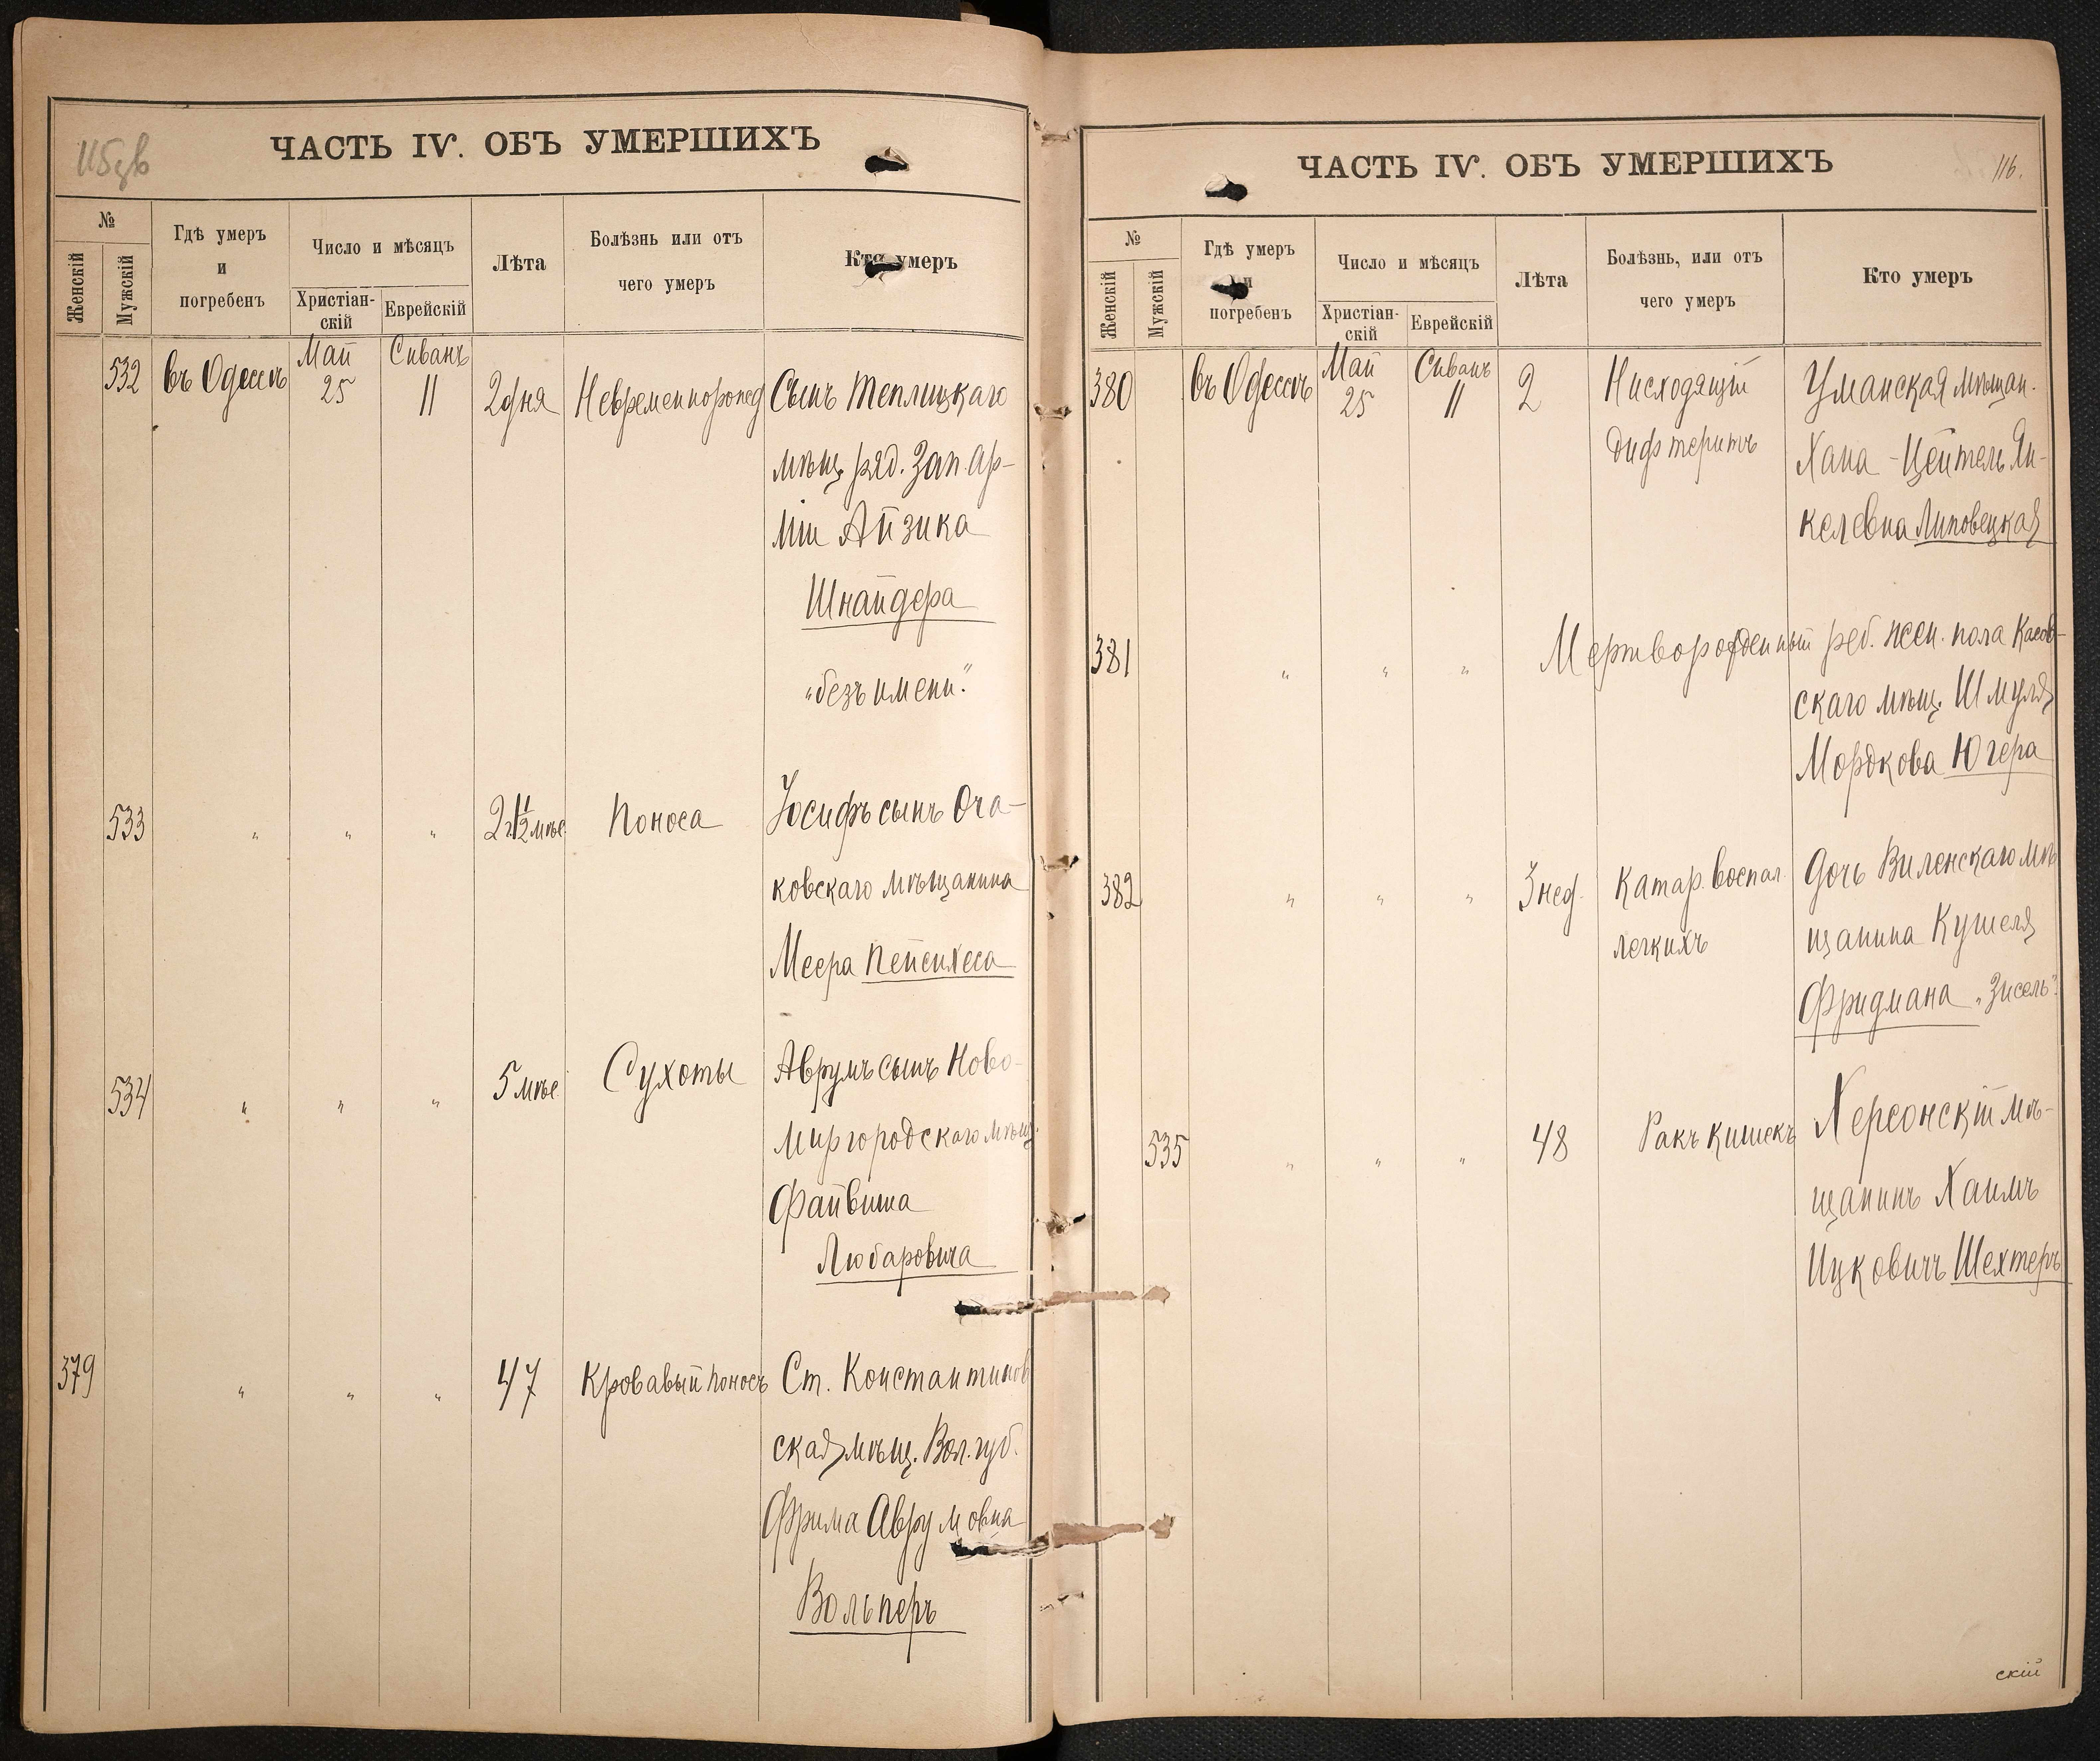 115 об
ЧАСТЬ IV. ОБЪ УМЕРШИХЪ
№
Женскій
Мужскій
Гдѣ умеръ
и
погребенъ
Число и мѣсяцъ
Христіан-
скій
Еврейскій
Лѣта
Болѣзнь или отъ
чего умеръ
Кто умеръ
532 въ Одессѣ Май 25 Сиванъ 11 2 дня Невременнорожд Сынъ Теплицкаго
мѣщ. ряд. Зап. Ар-
міи Айзика
Шнайдера
"безъ имени".
533 " " " 2 1/2 мѣс. Поноса Іосифъ сынъ Оча-
ковскаго мѣщанина
Меера Пейсихеса
534 " " " 5 мѣс. Сухоты Аврумъ сынъ Ново-
миргородскаго мѣщ.
Файвиша
Любаровича
379 " " " 47 Кровавый поносъ Ст. Константинов
ская мѣщ. Вол. губ.
Фрима Аврумовна
Вольперъ
116.
ЧАСТЬ IV. ОБЪ УМЕРШИХЪ
№
Женскій
Мужскій
Гдѣ умеръ
и
погребенъ
Число и мѣсяцъ
Христіан-
скій
Еврейскій
Лѣта
Болѣзнь, или отъ
чего умеръ
Кто умеръ
380 въ Одессѣ Май 25 Сиванъ 11 2 Нисходящій Уманская мѣщан.
дифтеритъ Хана-Цейтель Ян-
келевна Липовецкая
381 " " " Мертворожденный реб. жен. пола
скаго мѣщ. Шмуля
Мордкова Югера
382 " " " 3 нед. Катар. воспал. Дочь Виленскаго мѣ
легкихъ щанина Кушеля
Фридмана "Зисель".
535 " " " 48 Ракъ кишекъ Херсонскій мѣ-
щанинъ Хаимъ
Ицковичъ Шехтеръ
скій